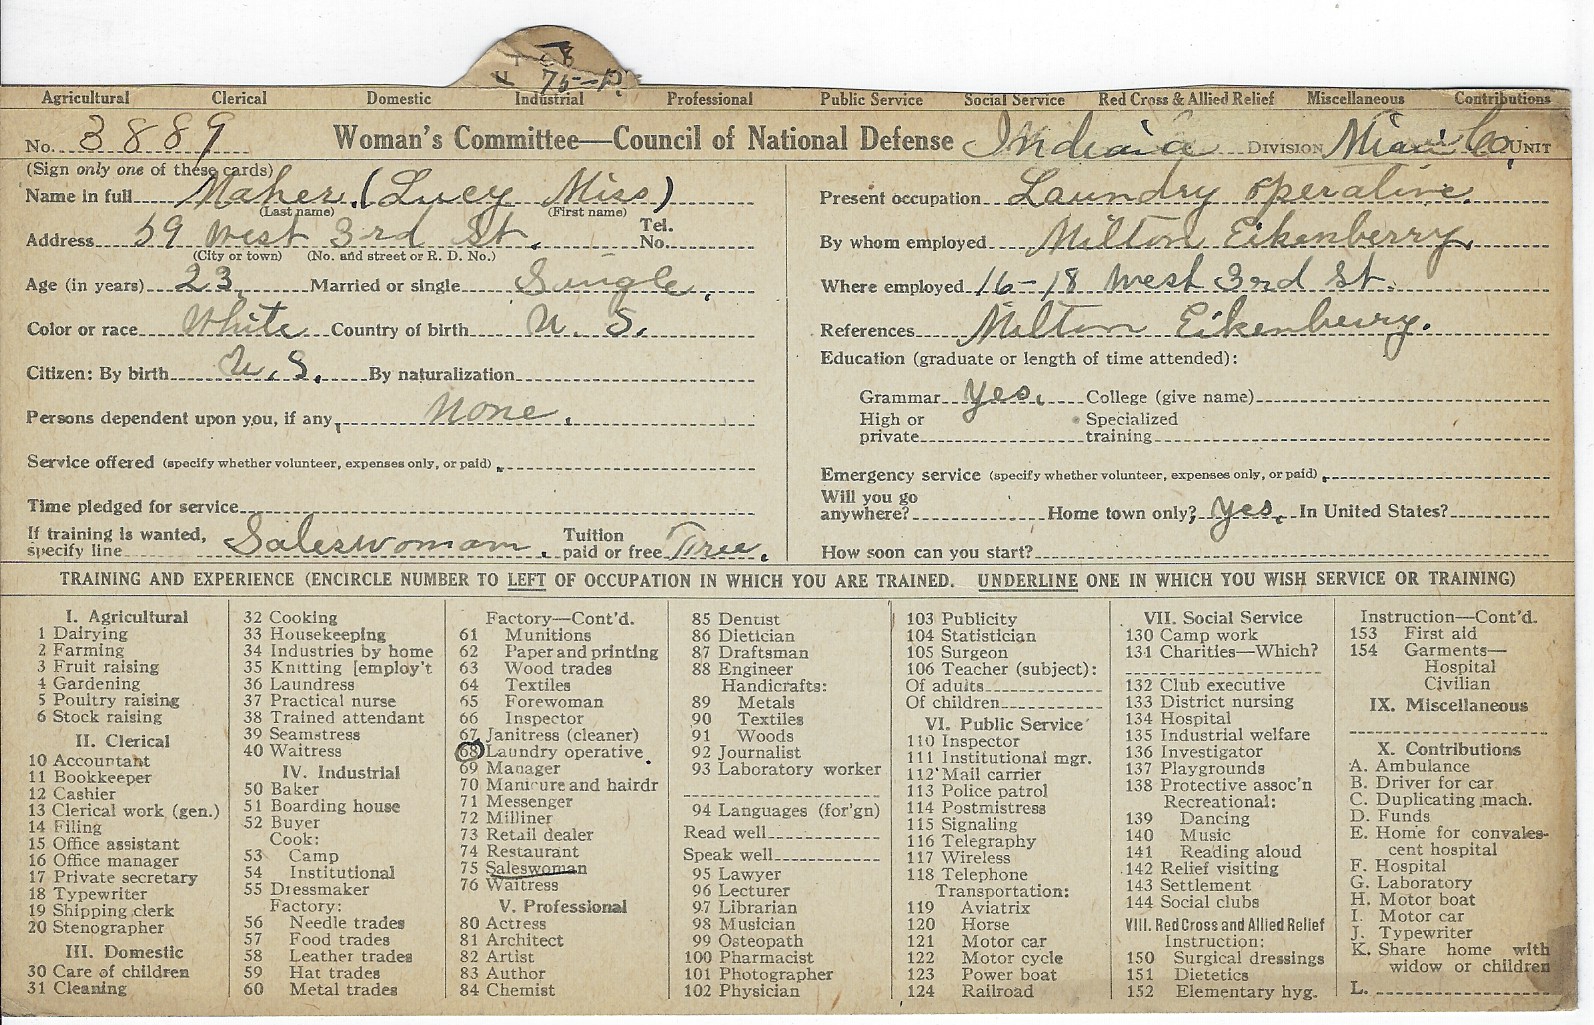 75-P.
Agricultural Clerical Domestic Industrial Professional Public Service Social Service Red Cross & Allied Relief Miscellaneous Contributions
No. 3889 Woman's Committee—Council of National Defense Indiana DIVISION Miami Co. UNIT
(Sign only one of these cards)
Name in full Maher. (Lucy Miss)
(Last name) (First name)
Address 59 West 3rd St. Tel. No.
(City or town) (No. and street or R. D. No.)
Age (in years) 23. Married or single Single.
Color or race White Country of birth U. S.
Citizen: By birth U. S. By naturalization
Persons dependent upon you, if any, None.
Service offered (specify whether volunteer, expenses only, or paid)
Time pledged for service
If training is wanted, specify line Saleswoman. Tuition paid or free Free.
Present occupation Laundry operative.
By whom employed Milton Eikenberry.
Where employed 16-18 West 3rd St.
References Milton Eikenberry.
Education (graduate or length of time attended):
Grammar Yes. College (give name)
High or private Specialized training
Emergency service (specify whether volunteer, expenses only, or paid)
Will you go anywhere? Home town only? Yes. In United States?
How soon can you start?
TRAINING AND EXPERIENCE (ENCIRCLE NUMBER TO LEFT OF OCCUPATION IN WHICH YOU ARE TRAINED. UNDERLINE ONE IN WHICH YOU WISH SERVICE OR TRAINING)
I. Agricultural
1 Dairying
2 Farming
3 Fruit raising
4 Gardening
5 Poultry raising
6 Stock raising
II. Clerical
10 Accountant
11 Bookkeeper
12 Cashier
13 Clerical work (gen.)
14 Filing
15 Office assistant
16 Office manager
17 Private secretary
18 Typewriter
19 Shipping clerk
20 Stenographer
III. Domestic
30 Care of children
31 Cleaning
32 Cooking
33 Housekeeping
34 Industries by home
35 Knitting [employ't
36 Laundress
37 Practical nurse
38 Trained attendant
39 Seamstress
40 Waitress
IV. Industrial
50 Baker
51 Boarding house
52 Buyer
Cook:
53 Camp
54 Institutional
55 Dressmaker
Factory:
56 Needle trades
57 Food trades
58 Leather trades
59 Hat trades
60 Metal trades
Factory—Cont'd.
61 Munitions
62 Paper and printing
63 Wood trades
64 Textiles
65 Forewoman
66 Inspector
67 Janitress (cleaner)
68 Laundry operative
69 Manager
70 Manicure and hairdr
71 Messenger
72 Milliner
73 Retail dealer
74 Restaurant
75 Saleswoman
76 Waitress
V. Professional
80 Actress
81 Architect
82 Artist
83 Author
84 Chemist
85 Dentist
86 Dietician
87 Draftsman
88 Engineer
Handicrafts:
89 Metals
90 Textiles
91 Woods
92 Journalist
93 Laboratory worker
94 Languages (for'gn)
Read well
Speak well
95 Lawyer
96 Lecturer
97 Librarian
98 Musician
99 Osteopath
100 Pharmacist
101 Photographer
102 Physician
103 Publicity
104 Statistician
105 Surgeon
106 Teacher (subject):
Of adults
Of children
VI. Public Service
110 Inspector
111 Institutional mgr.
112 Mail carrier
113 Police patrol
114 Postmistress
115 Signaling
116 Telegraphy
117 Wireless
118 Telephone
Transportation:
119 Aviatrix
120 Horse
121 Motor car
122 Motor cycle
123 Power boat
124 Railroad
VII. Social Service
130 Camp work
131 Charities—Which?
132 Club executive
133 District nursing
134 Hospital
135 Industrial welfare
136 Investigator
137 Playgrounds
138 Protective assoc'n
Recreational:
139 Dancing
140 Music
141 Reading aloud
142 Relief visiting
143 Settlement
144 Social clubs
VIII. Red Cross and Allied Relief
Instruction:
150 Surgical dressings
151 Dietetics
152 Elementary hyg.
Instruction—Cont'd.
153 First aid
154 Garments—
Hospital
Civilian
IX. Miscellaneous
X. Contributions
A. Ambulance
B. Driver for car
C. Duplicating mach.
D. Funds
E. Home for convales-
cent hospital
F. Hospital
G. Laboratory
H. Motor boat
I. Motor car
J. Typewriter
K. Share home with
widow or children
L.